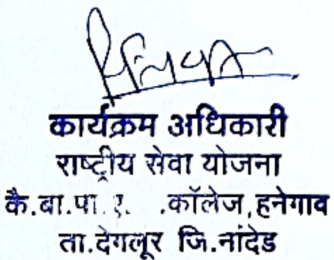 कार्यक्रम अधिकारी
राष्ट्रीय सेवा योजना
कै.बा.पा. .कॉलेज,हनेगाव
ता.देगलूर जि.नांदेड